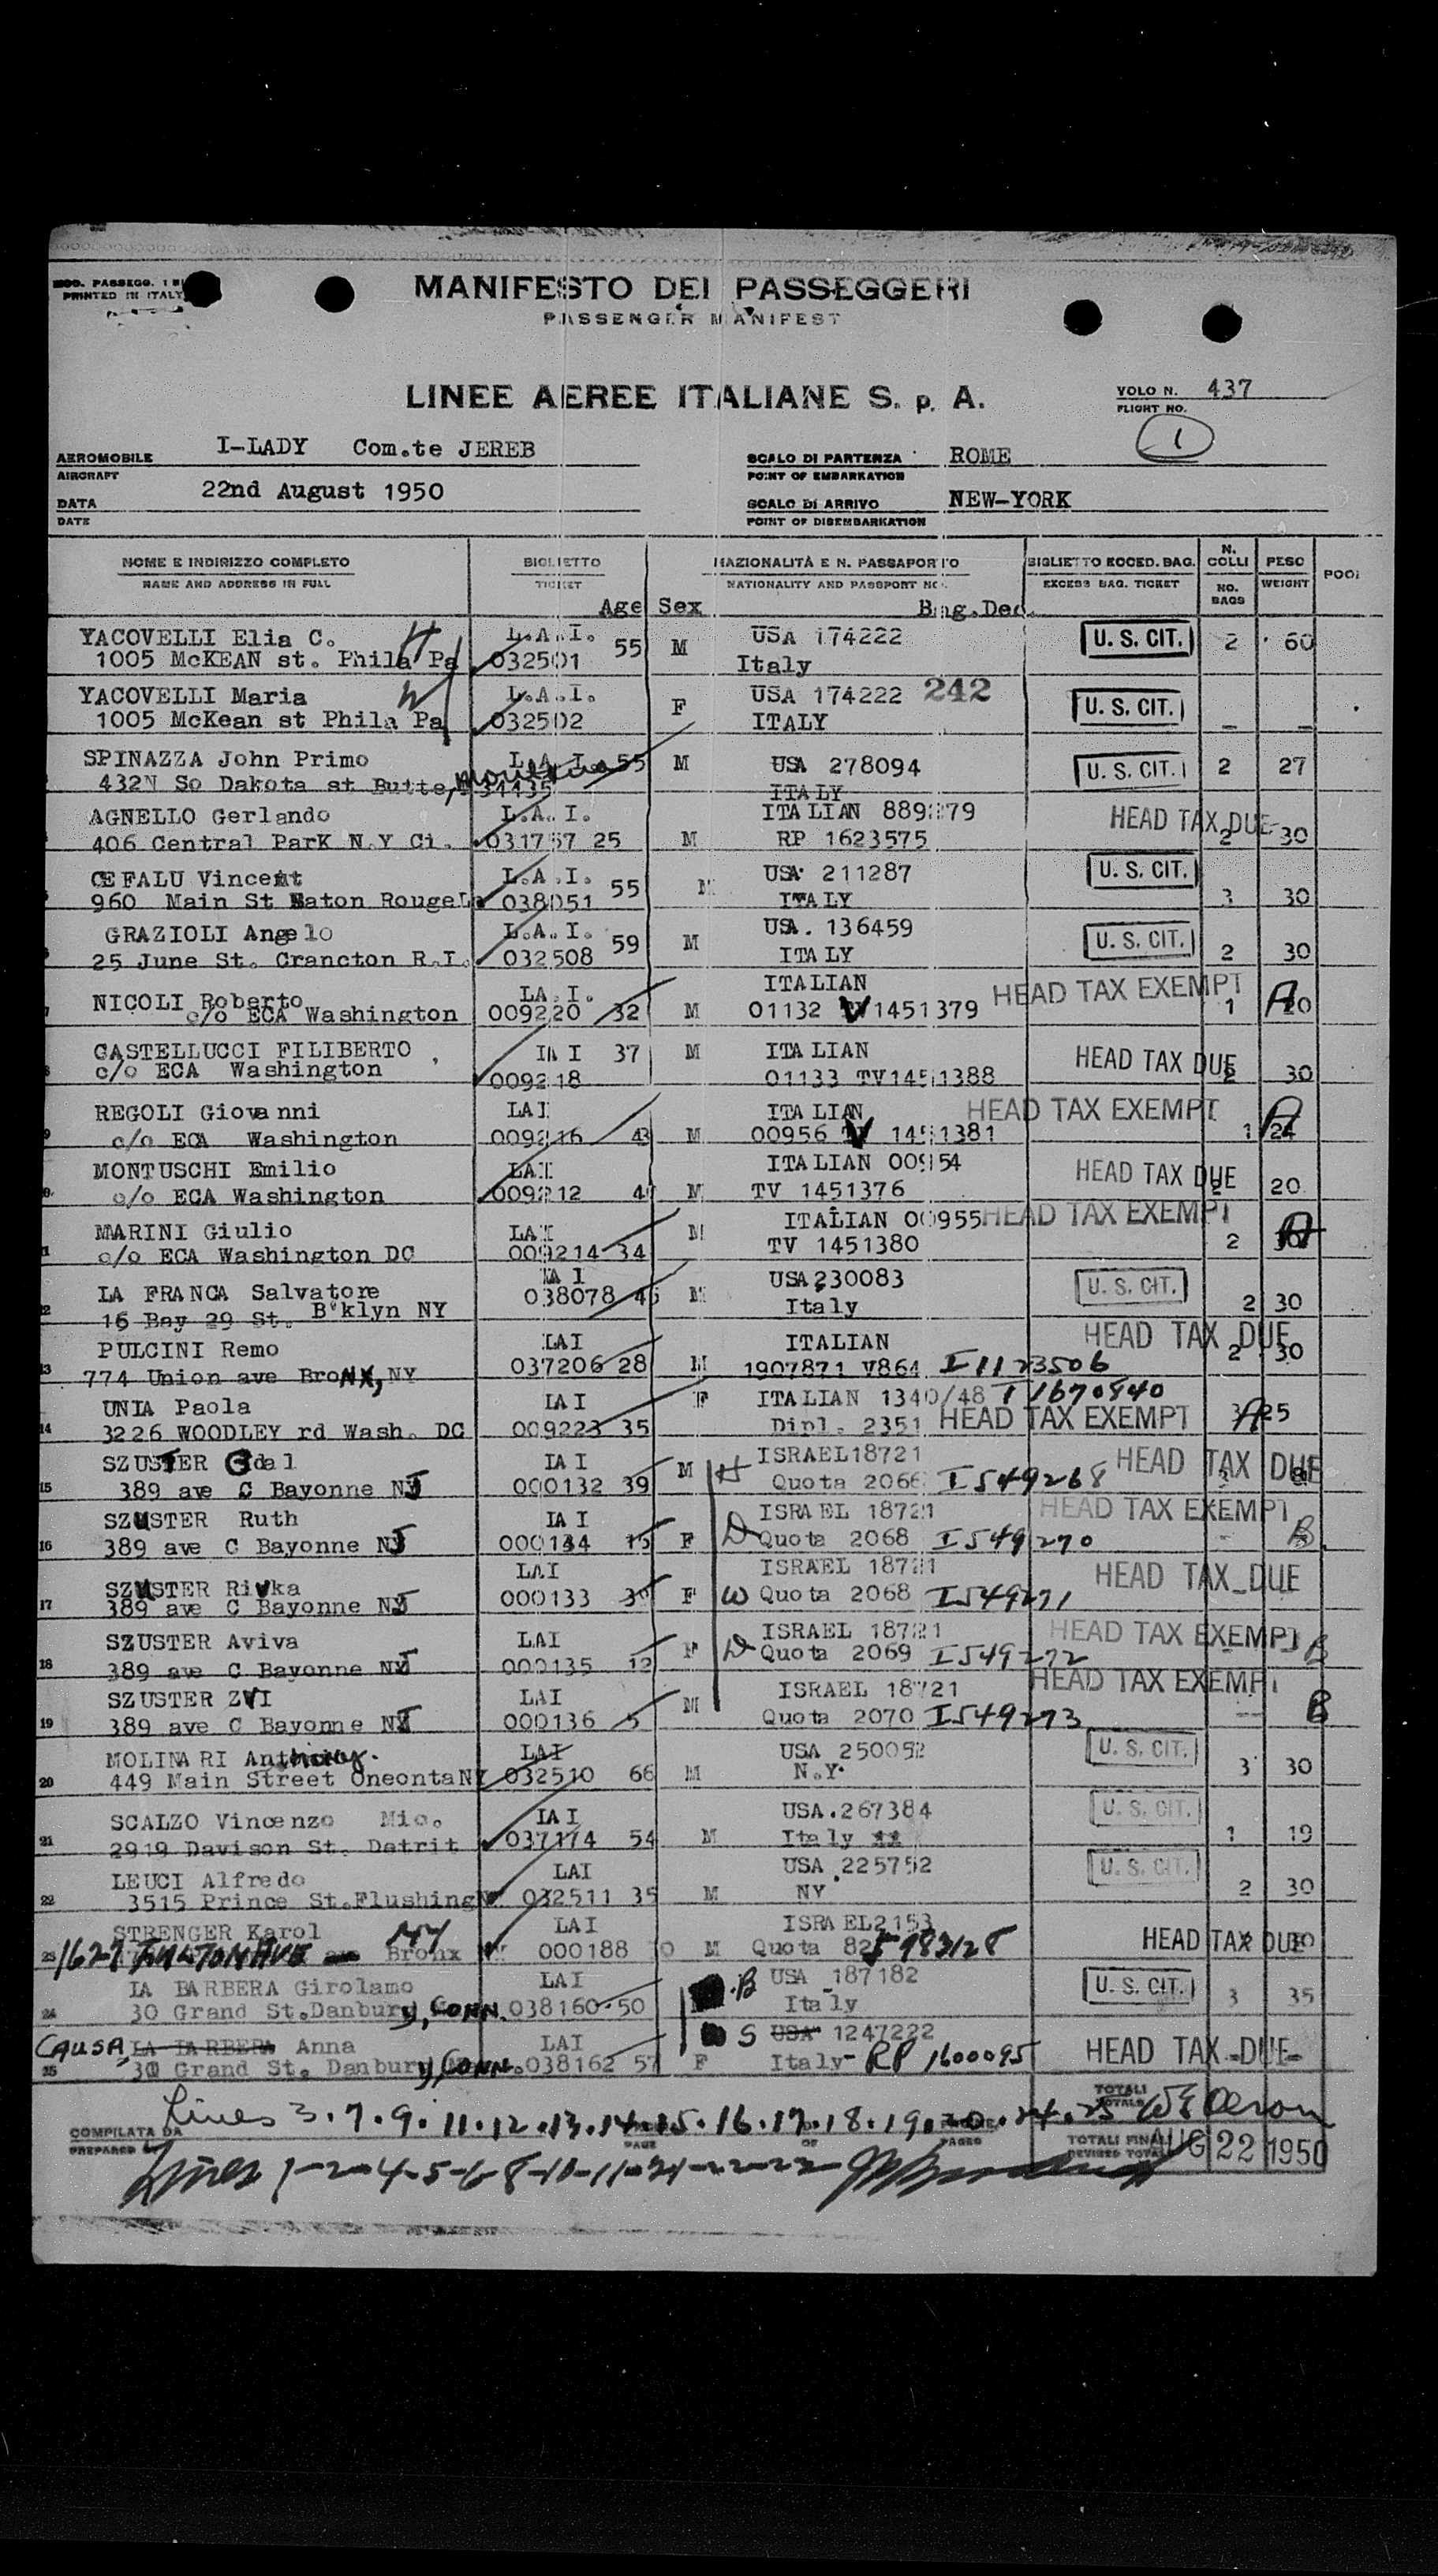 MOD. PASSEGG. 1
PRINTED IN ITALY
MANIFESTO DEI PASSEGGERI
PASSENGER MANIFEST
LINEE AEREE ITALIANE S. p. A.
VOLO N. 437
FLIGHT NO.
1
AEROMOBILE I-LADY Com.te JEREB
AIRCRAFT
SCALO DI PARTENZA ROME
POINT OF EMBARKATION
DATA 22nd August 1950
DATE
SCALO DI ARRIVO NEW-YORK
POINT OF DISEMBARKATION
NOME E INDIRIZZO COMPLETO BIGLIETTO NAZIONALITÀ E N. PASSAPORTO BIGLIETTO ECCED. BAG. N. COLLI PESO
NAME AND ADDRESS IN FULL TICKET NATIONALITY AND PASSPORT NO. EXCESS BAG. TICKET NO. BAGS WEIGHT
Age Sex Bag.Dec.
YACOVELLI Elia C. H L.A.I. 55 M USA 174222 U. S. CIT. 2 60
1005 McKEAN st. Phila Pa 032501 Italy
YACOVELLI Maria W L.A.I. F USA 174222 242 U. S. CIT. _ _
1005 McKean st Phila Pa 032502 ITALY
SPINAZZA John Primo L.A.I. 55 M USA 278094 U. S. CIT. 2 27
432N So Dakota st Butte, Montana ITALY
AGNELLO Gerlando L.A.I. ITALIAN 889279 HEAD TAX DUE
406 Central ParK N.Y Ci. 031757 25 M RP 1623575 2 30
CEFALU Vincent L.A.I. 55 M USA 211287 U. S. CIT.
960 Main St Baton Rouge 038051 ITALY 3 30
GRAZIOLI Angelo L.A.I. 59 M USA. 136459 U. S. CIT.
25 June St. Crancton R.I. 032508 ITALY 2 30
NICOLI Roberto LA.I. ITALIAN HEAD TAX EXEMPT A
c/o ECA Washington 009220 32 M 01132 V 1451379 1 20
CASTELLUCCI FILIBERTO IAI 37 M ITALIAN HEAD TAX DUE
c/o ECA Washington 009218 01133 TV1451388 2 30
REGOLI Giovanni LAI ITALIAN HEAD TAX EXEMPT A
9 c/o ECA Washington 009216 43 M 00956 V 1451381 1
MONTUSCHI Emilio LAI ITALIAN 00954 HEAD TAX DUE
c/o ECA Washington 009212 M TV 1451376 20
MARINI Giulio LAI M ITALIAN 00955 HEAD TAX EXEMPT
c/o ECA Washington DC 009214 34 TV 1451380 2
LA FRANCA Salvatore IAI USA 230083 U. S. CIT.
16 Bay 29 St. B'klyn NY 038078 M Italy 2 30
PULCINI Remo LAI ITALIAN HEAD TAX DUE
774 Union ave BroNX, NY 037206 28 M 1907871 V864 I 1123506 2 30
UNIA Paola IAI F ITALIAN 1340/48 I 1670840
14 3226 WOODLEY rd Wash. DC 009223 35 Dipl. 2351 HEAD TAX EXEMPT 25
SZUSTER Gdal IAI M H ISRAEL18721 HEAD TAX DUE
15 389 ave C Bayonne NJ 000132 39 Quota 2066 I549268
SZUSTER Ruth IAI ISRAEL 18721 HEAD TAX EXEMPT
16 389 ave C Bayonne NJ 000134 15 F D Quota 2068 I549270 B
SZUSTER Rivka LAI ISRAEL 18721 HEAD TAX DUE
17 389 ave C Bayonne NJ 000133 F W Quota 2068 I549271
SZUSTER Aviva LAI F D ISRAEL 18721 HEAD TAX EXEMPT
18 389 ave C Bayonne NJ 000135 12 Quota 2069 I549272 B
SZUSTER ZVI LAI M ISRAEL 18721 HEAD TAX EXEMPT
19 389 ave C Bayonne NJ 000136 5 Quota 2070 I549273 B
MOLINARI Anthony. LAI USA 250052 U. S. CIT.
20 449 Main Street OneontaNY 032510 66 M N.Y. 3 30
SCALZO Vincenzo Mic. IAI USA.267384 U. S. CIT.
21 2919 Davison St. Detrit 037174 54 M Italy 1 19
LEUCI Alfredo LAI USA 225752 U. S. CIT.
22 3515 Prince St.Flushing 032511 35 M NY 2 30
STRENGER Karol NY LAI ISRAEL2153 HEAD TAX DUE
23 1627 FULTON AVE Bronx 000188 M Quota
LA BARBERA Girolamo LAI .B USA 187182 U. S. CIT.
24 30 Grand St.Danbury, CONN. 038160 50 Italy 3 35
CAUSA, LA BARBERA Anna LAI S USA 1247222 HEAD TAX DUE
30 Grand St. Danbury, CONN. 038162 57 F Italy- RP 1600095
Lines 3.7.9.11.12.13.14.15.16.17.18.19.20.24.25
COMPILATA DA TOTALI
PREPARED PAGE OF PAGES TOTALI FINALI
REVISED TOTALS AUG 22 1950
Lines 1-2-4-5-6-8-10-11-21-22-23-